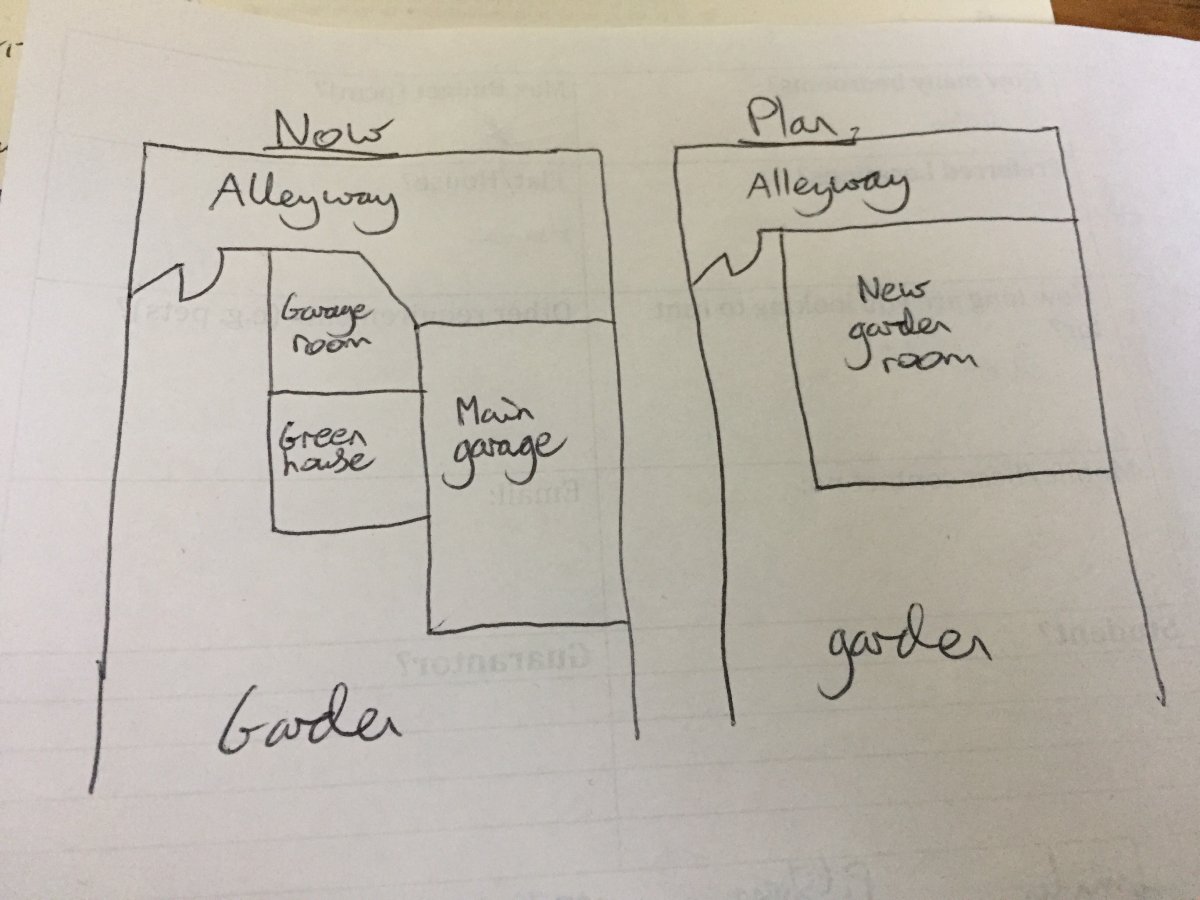 Now
Alleyway
Garage
room
Green
house
Main
garage
Garden
Plan
Alleyway
New
garden
room
garden